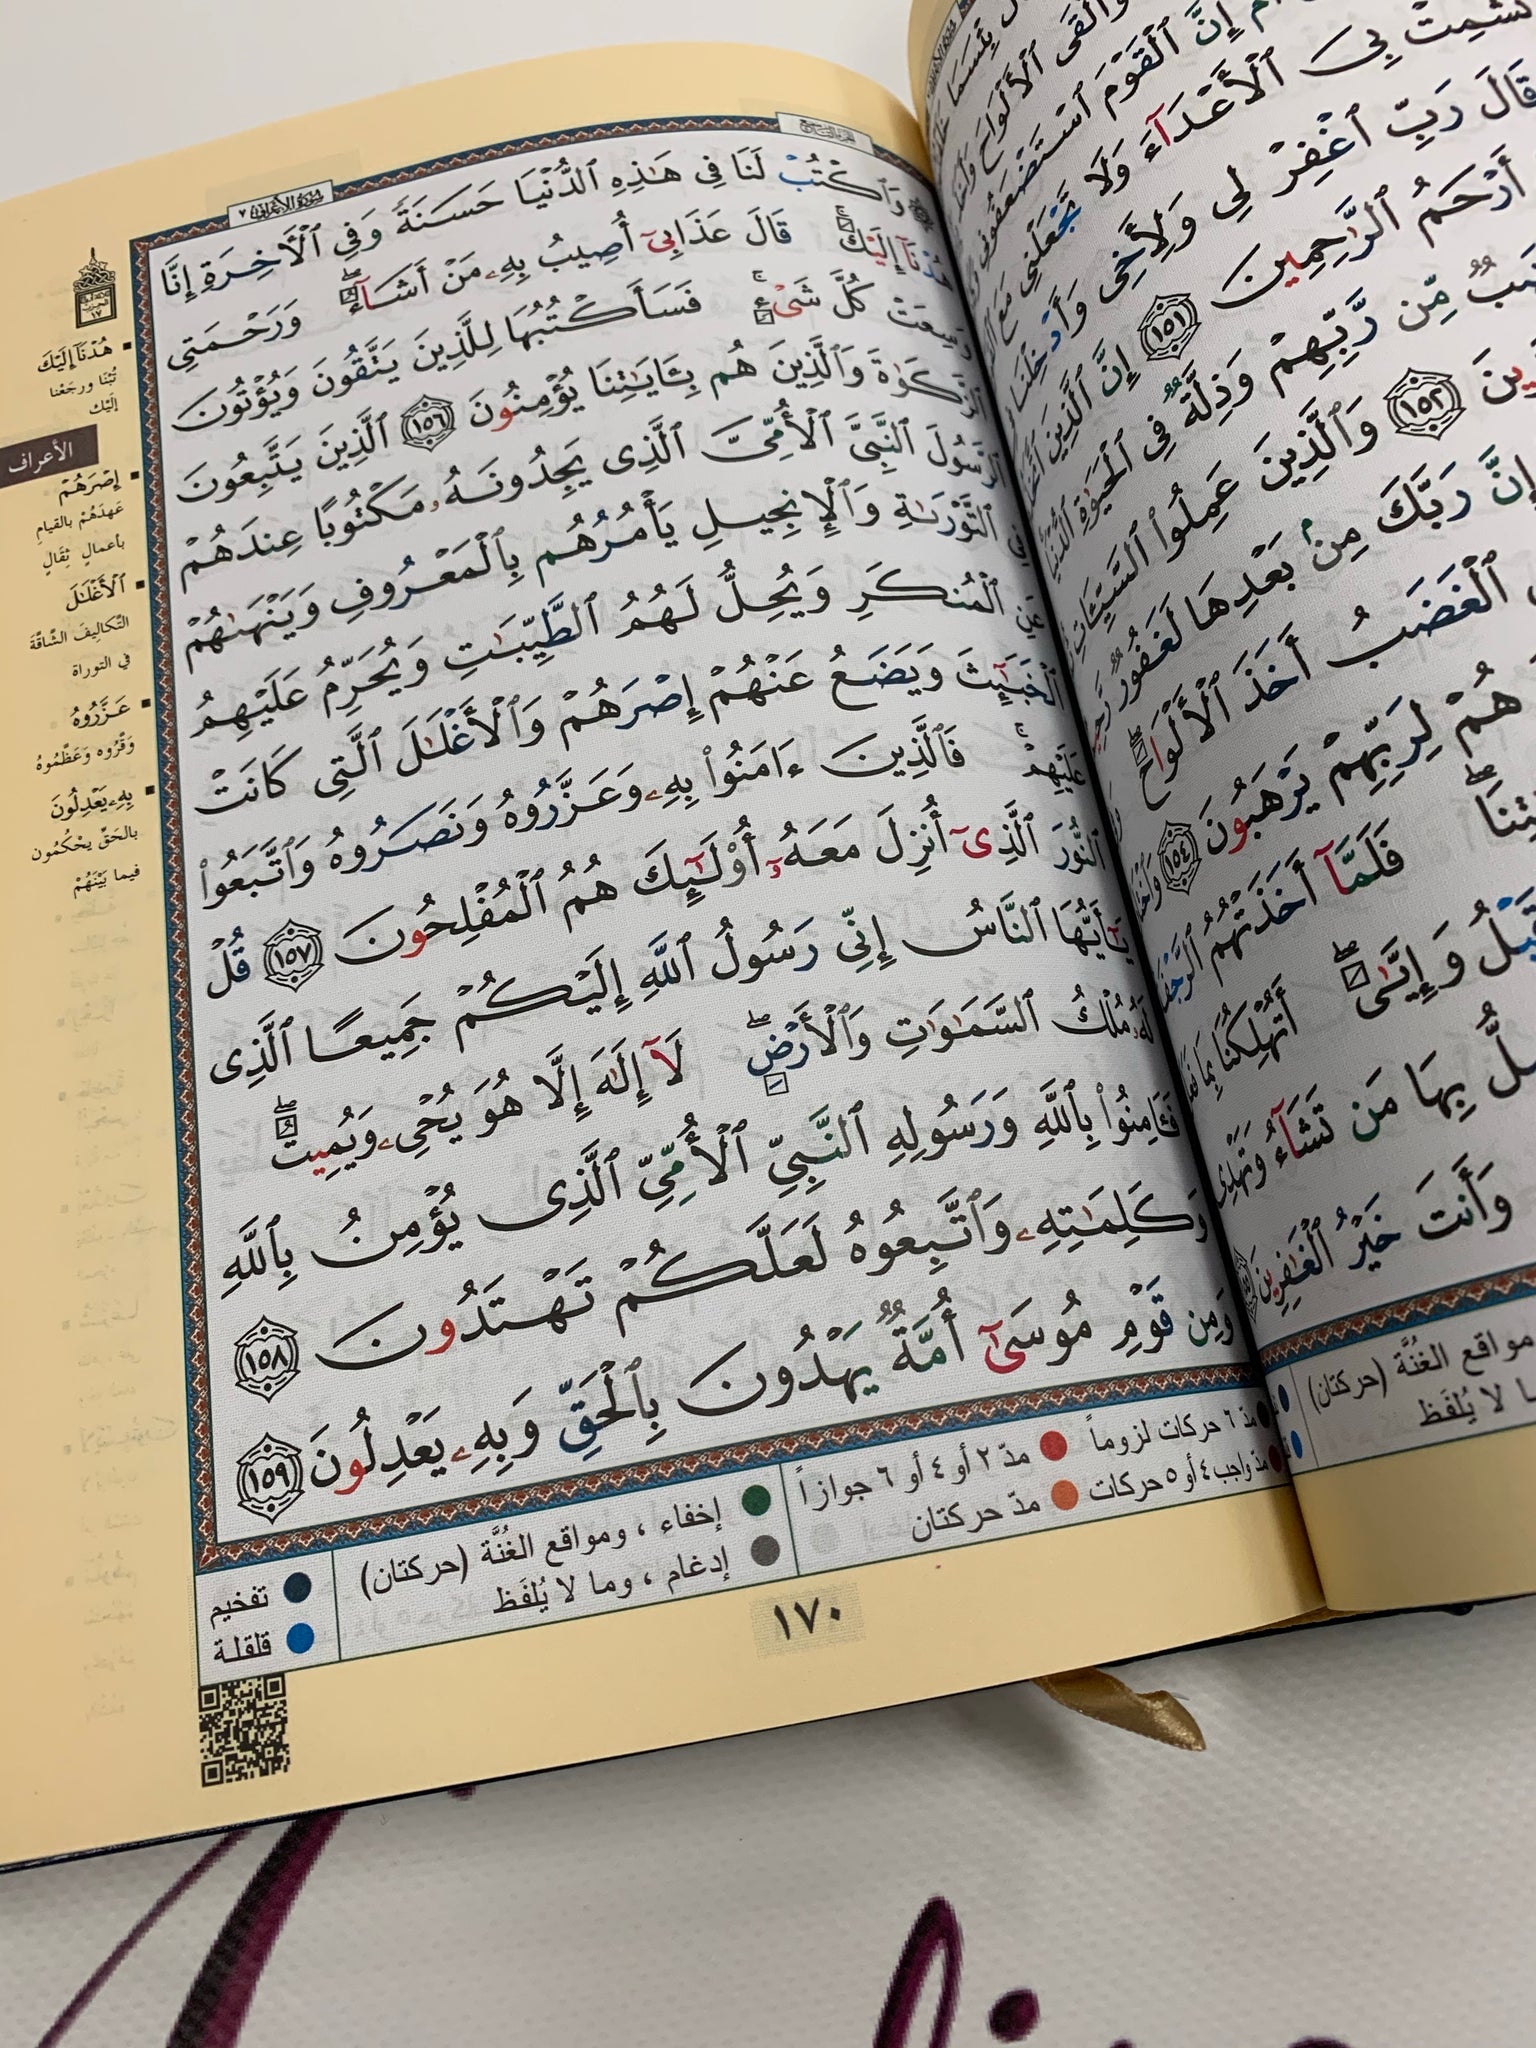 سورة الأعراف ٧
وَٱكْتُبْ لَنَا فِى هَٰذِهِ ٱلدُّنْيَا حَسَنَةً وَفِى ٱلْأَخِرَةِ إِنَّا
هُدْنَآ إِلَيْكَ قَالَ عَذَابِىٓ أُصِيبُ بِهِۦ مَنْ أَشَآءُ وَرَحْمَتِى
وَسِعَتْ كُلَّ شَىْءٍ فَسَأَكْتُبُهَا لِلَّذِينَ يَتَّقُونَ وَيُؤْتُونَ
ٱلزَّكَوٰةَ وَٱلَّذِينَ هُم بِـَٔايَٰتِنَا يُؤْمِنُونَ ١٥٦ ٱلَّذِينَ يَتَّبِعُونَ
ٱلرَّسُولَ ٱلنَّبِىَّ ٱلْأُمِّىَّ ٱلَّذِى يَجِدُونَهُۥ مَكْتُوبًا عِندَهُمْ
فِى ٱلتَّوْرَىٰةِ وَٱلْإِنجِيلِ يَأْمُرُهُم بِٱلْمَعْرُوفِ وَيَنْهَىٰهُمْ
عَنِ ٱلْمُنكَرِ وَيُحِلُّ لَهُمُ ٱلطَّيِّبَٰتِ وَيُحَرِّمُ عَلَيْهِمُ
ٱلْخَبَٰٓئِثَ وَيَضَعُ عَنْهُمْ إِصْرَهُمْ وَٱلْأَغْلَٰلَ ٱلَّتِى كَانَتْ
عَلَيْهِمْ فَٱلَّذِينَ ءَامَنُوا۟ بِهِۦ وَعَزَّرُوهُ وَنَصَرُوهُ وَٱتَّبَعُوا۟
ٱلنُّورَ ٱلَّذِىٓ أُنزِلَ مَعَهُۥٓ أُو۟لَٰٓئِكَ هُمُ ٱلْمُفْلِحُونَ ١٥٧ قُلْ
يَٰٓأَيُّهَا ٱلنَّاسُ إِنِّى رَسُولُ ٱللَّهِ إِلَيْكُمْ جَمِيعًا ٱلَّذِى
لَهُۥ مُلْكُ ٱلسَّمَٰوَٰتِ وَٱلْأَرْضِ لَآ إِلَٰهَ إِلَّا هُوَ يُحْىِۦ وَيُمِيتُ
فَـَٔامِنُوا۟ بِٱللَّهِ وَرَسُولِهِ ٱلنَّبِىِّ ٱلْأُمِّىِّ ٱلَّذِى يُؤْمِنُ بِٱللَّهِ
وَكَلِمَٰتِهِۦ وَٱتَّبِعُوهُ لَعَلَّكُمْ تَهْتَدُونَ ١٥٨
وَمِن قَوْمِ مُوسَىٰٓ أُمَّةٌ يَهْدُونَ بِٱلْحَقِّ وَبِهِۦ يَعْدِلُونَ ١٥٩
هُدْنَآ إِلَيْكَ
تُبْنَا ورجَعْنا
إلَيْك
الأعراف
إِصْرَهُمْ
عَهدَهُمْ بالقيامِ
بأعمالٍ ثِقَالٍ
ٱلْأَغْلَٰلَ
التَّكاليفَ الشَّاقَّةَ
في التوراة
عَزَّرُوهُ
وَقَّرُوه وَعَظَّمُوهُ
بِهِۦ يَعْدِلُونَ
بالحَقِّ يحْكُمُون
فيما بَيْنَهُمْ
مدّ ٦ حركات لزوماً
مدّ ٢ أو ٤ أو ٦ جوازاً
مدّ واجب ٤ أو ٥ حركات
مدّ حركتان
إخفاء ، ومواقع الغُنَّة (حركتان)
إدغام ، وما لا يُلفَظ
تفخيم
قلقلة
١٧٠
وَأَلْقَى ٱلْأَلْوَاحَ
إِنَّ ٱلْقَوْمَ ٱسْتَضْعَفُونِى
تُشْمِتْ بِىَ ٱلْأَعْدَآءَ وَلَا تَجْعَلْنِى مَعَ
قَالَ رَبِّ ٱغْفِرْ لِى وَلِأَخِى وَأَدْخِلْنَا
أَرْحَمُ ٱلرَّٰحِمِينَ ١٥١ إِنَّ ٱلَّذِينَ
مِّن رَّبِّهِمْ وَذِلَّةٌ فِى ٱلْحَيَوٰةِ ٱلدُّنْيَا
١٥٢ وَٱلَّذِينَ عَمِلُوا۟ ٱلسَّيِّـَٔاتِ
إِنَّ رَبَّكَ مِنۢ بَعْدِهَا لَغَفُورٌ
ٱلْغَضَبُ أَخَذَ ٱلْأَلْوَاحَ
هُمْ لِرَبِّهِمْ يَرْهَبُونَ ١٥٤
فَلَمَّآ أَخَذَتْهُمُ ٱلرَّجْفَةُ
قَبْلُ وَإِيَّٰىَ أَتُهْلِكُنَا بِمَا
بِهَا مَن تَشَآءُ وَتَهْدِى
وَأَنتَ خَيْرُ ٱلْغَٰفِرِينَ
ومواقع الغُنَّة (حركتان)
لا يُلفَظ